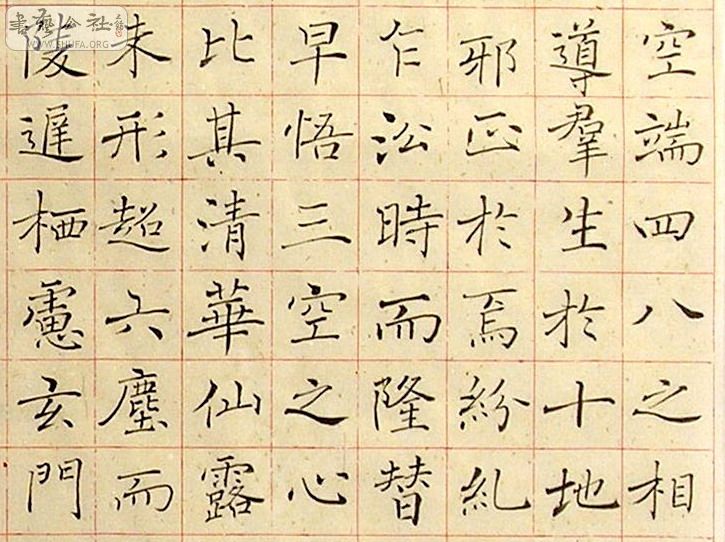 空端四八之相
導羣生於十地
邪正於焉紛糺
乍沿時而隆替
早悟三空之心
比其清華仙露
未形超六塵而
陵遲栖慮玄門
書藝公社
WWW.SHUFA.ORG